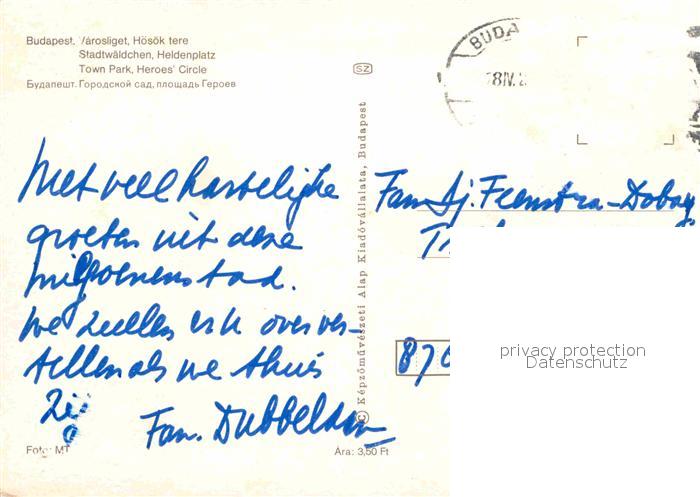 Budapest. Városliget, Hősök tere
Stadtwäldchen, Heldenplatz
Town Park, Heroes' Circle
Будапешт. Городской сад, площадь Героев
SZ
BUDA
8IV.2
Met veel hartelijke
groeten uit deze
miljoenenstad.
we zullen er u over ver-
tellen als we thuis
zij
Fam. Dubbeldam
Foto: MT
Ára: 3,50 Ft
© Képzőművészeti Alap Kiadóvállalata, Budapest
Fam. Tj. Feenstra-Dobay
870
privacy protection
Datenschutz